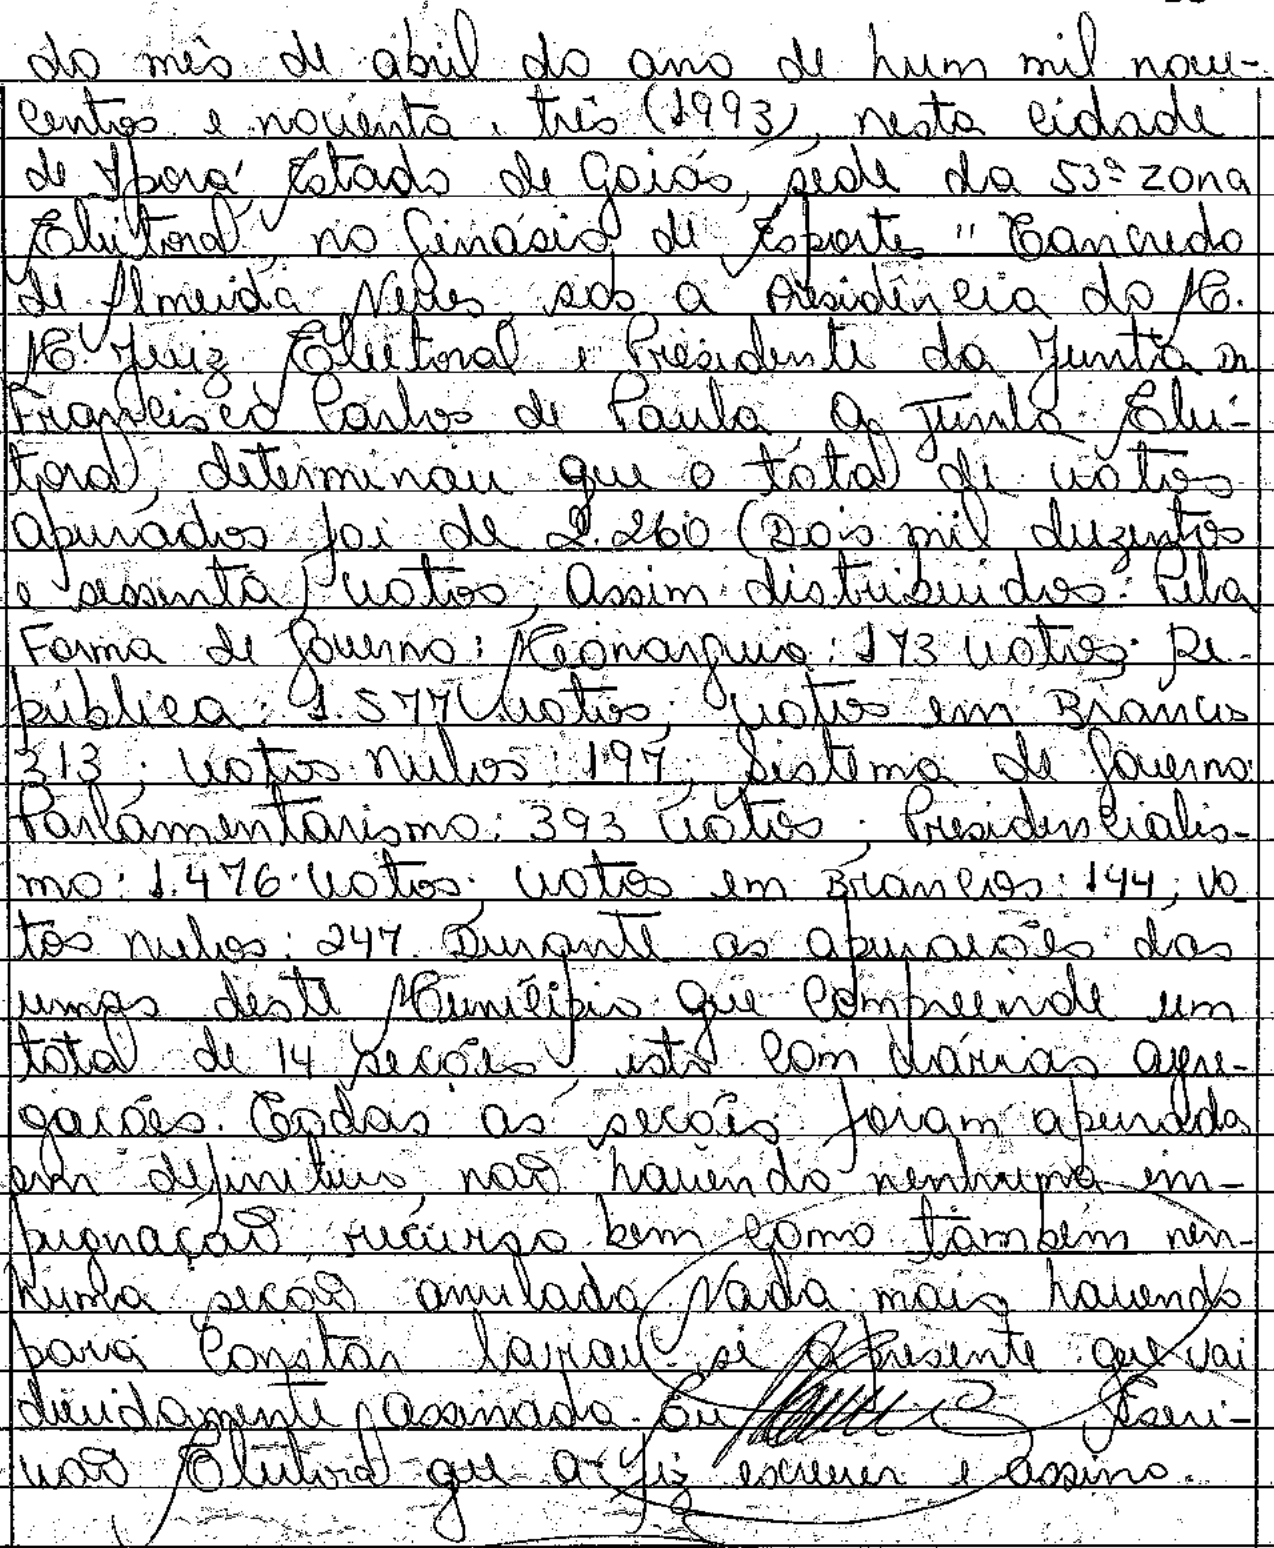 do mês de abril do ano de hum mil nove-
centos e noventa e três (1993), nesta cidade
de Iporá Estado de Goiás, sede da 53ª Zona
Eleitoral, no Ginásio de Esportes "Tancredo
de Almeida Neves, sob a Presidência do M.
M. Juiz Eleitoral e Presidente da Junta Dr.
Francisco Carlos de Paula a Junta Elei-
toral, determinou que o total de votos
apurados foi de 2.260 (Dois mil duzentos
e sessenta) votos, assim distribuidos: Pela
Forma de Governo: Monarquia: 173 votos; Re-
pública: 1.577 votos; votos em Brancos
313; votos nulos: 197, Sistema de Governo:
Parlamentarismo: 393 votos. Presidencialis-
mo: 1.476 votos. votos em Brancos: 144; vo
tos nulos: 247. Durante as apurações das
urnas deste Município que compreende um
total de 14 secões, isto com várias agre-
gações. Todas as secões foram apuradas
em definitivo, não havendo nenhuma im-
pugnação, recurso bem como também nen-
huma seção anulada. Nada mais havendo
para constar lavrou-se a presente que vai
devidamente assinada. Eu Escri-
vão Eleitoral que a fiz escrever e assino.